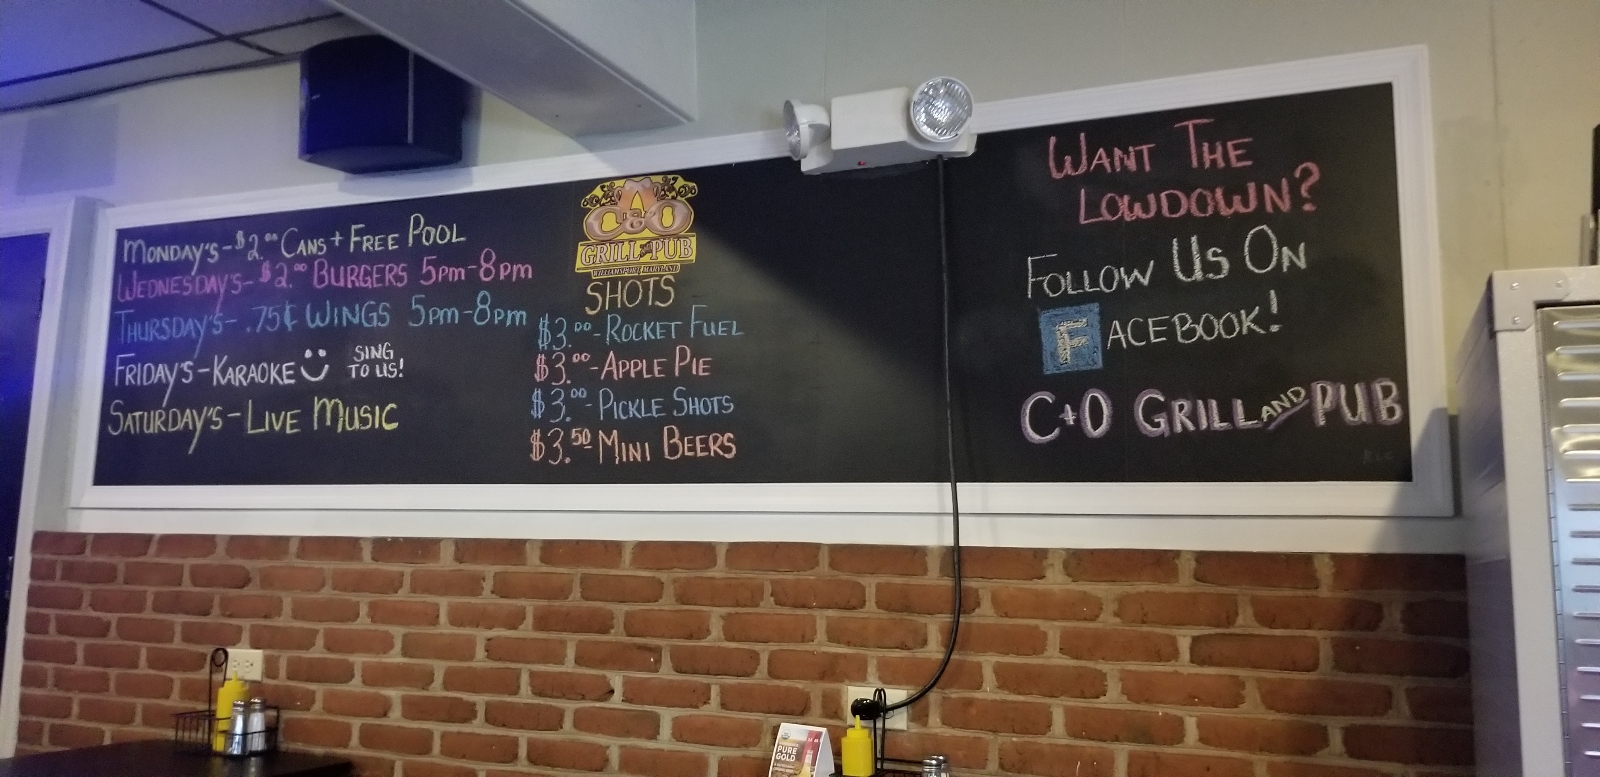 MONDAY'S - $2.00 CANS + FREE POOL
WEDNESDAY'S - $2.00 BURGERS 5PM-8PM
THURSDAY'S - .75¢ WINGS 5PM-8PM
FRIDAY'S - KARAOKE SING
TO US!
SATURDAY'S - LIVE MUSIC
C&O
GRILL AND PUB
WILLIAMSPORT, MARYLAND
SHOTS
$3.00 - ROCKET FUEL
$3.00 - APPLE PIE
$3.00 - PICKLE SHOTS
$3.50 - MINI BEERS
WANT THE
LOWDOWN?
FOLLOW US ON
FACEBOOK!
C+O GRILL AND PUB
RLC
PURE
GOLD